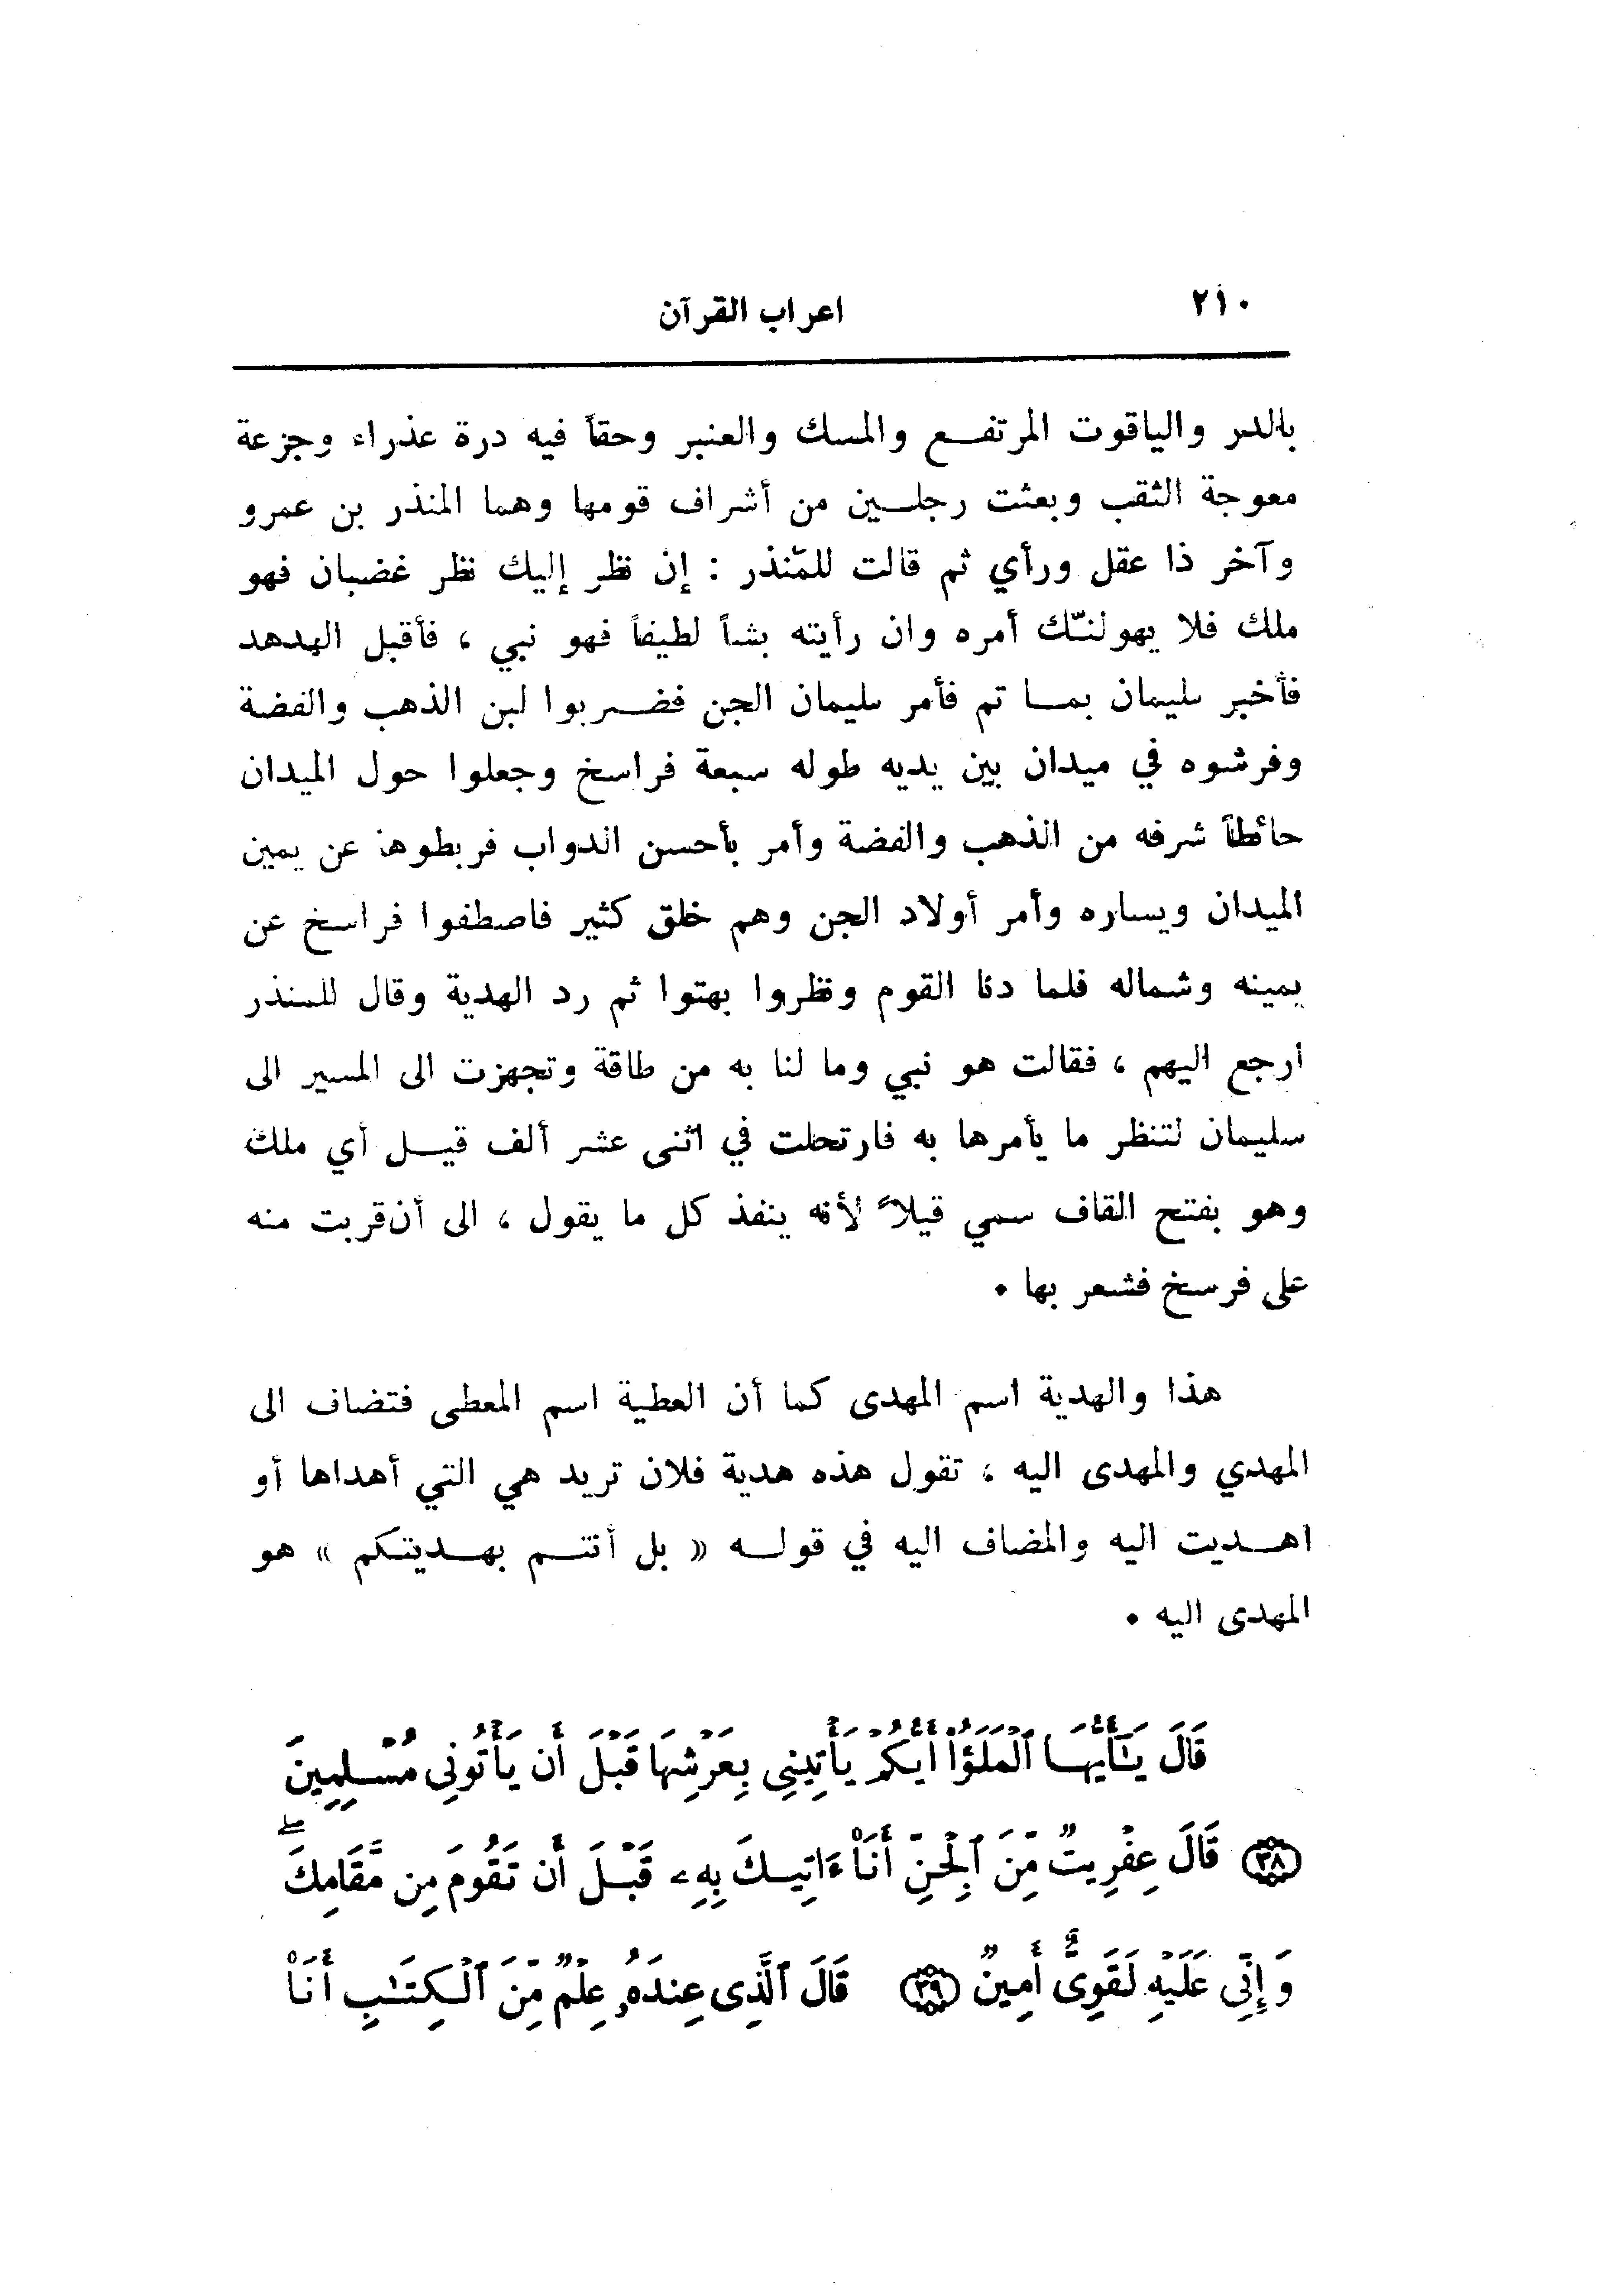 ٢١٠
اعراب القرآن
بالدر والياقوت المرتفع والمسك والعنبر وحقاً فيه درة عذراء وجزعة
معوجة الثقب وبعثت رجلين من أشراف قومها وهما المنذر بن عمرو
وآخر ذا عقل ورأي ثم قالت للمنذر : إن نظر إليك نظر غضبان فهو
ملك فلا يهولنّك أمره وان رأيته بشاً لطيفاً فهو نبي ، فأقبل الهدهد
فأخبر سليمان بما تم فأمر سليمان الجن فضربوا لبن الذهب والفضة
وفرشوه في ميدان بين يديه طوله سبعة فراسخ وجعلوا حول الميدان
حائطاً شرفه من الذهب والفضة وأمر بأحسن الدواب فربطوها عن يمين
الميدان ويساره وأمر أولاد الجن وهم خلق كثير فاصطفوا فراسخ عن
يمينه وشماله فلما دنا القوم ونظروا بهتوا ثم رد الهدية وقال للمنذر
ارجع اليهم ، فقالت هو نبي وما لنا به من طاقة وتجهزت الى المسير الى
سليمان لتنظر ما يأمرها به فارتحلت في اثنى عشر ألف قيل أي ملك
وهو بفتح القاف سمي قيلاً لأنه ينفذ كل ما يقول ، الى أن قربت منه
على فرسخ فشعر بها .
هذا والهدية اسم المهدى كما أن العطية اسم المعطى فتضاف الى
المهدي والمهدى اليه ، تقول هذه هدية فلان تريد هي التي أهداها أو
اهديت اليه والمضاف اليه في قوله « بل أنتم بهديتكم » هو
المهدى اليه .
قَالَ يَـٰٓأَيُّهَا ٱلْمَلَؤُا۟ أَيُّكُمْ يَأْتِينِى بِعَرْشِهَا قَبْلَ أَن يَأْتُونِى مُسْلِمِينَ
﴿٣٨﴾ قَالَ عِفْرِيتٌ مِّنَ ٱلْجِنِّ أَنَا۠ ءَاتِيكَ بِهِۦ قَبْلَ أَن تَقُومَ مِن مَّقَامِكَ ۖ
وَإِنِّى عَلَيْهِ لَقَوِىٌّ أَمِينٌ ﴿٣٩﴾ قَالَ ٱلَّذِى عِندَهُۥ عِلْمٌ مِّنَ ٱلْكِتَـٰبِ أَنَا۠